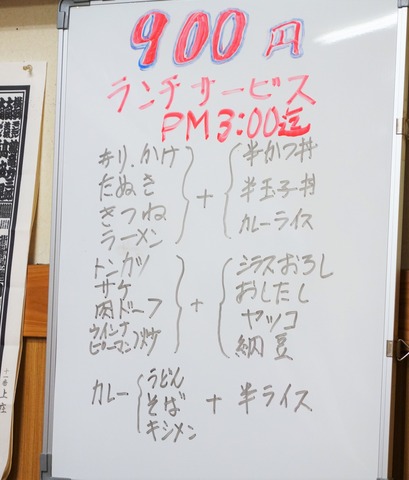 900円
ランチサービス
PM3:00迄
もり、かけ
たぬき
きつね
ラーメン
+
半かつ丼
半玉子丼
カレーライス
トンカツ
サケ
肉ドーフ
ウインナ
ピーマン炒
+
シラスおろし
おしたし
ヤッコ
納豆
カレー
うどん
そば
キシメン
+ 半ライス